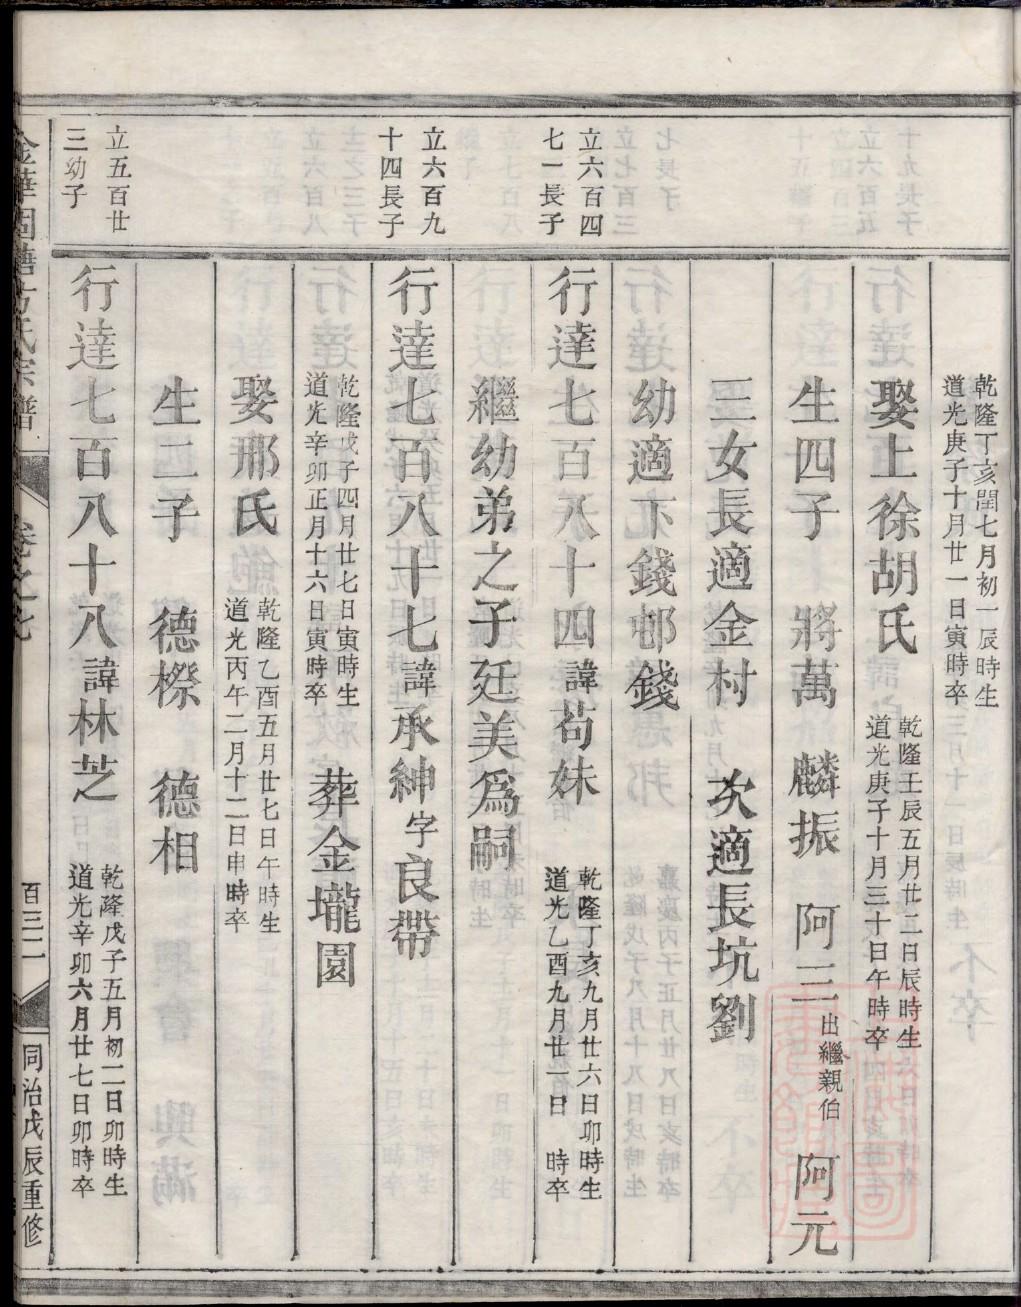 乾隆丁亥閏七月初一辰時生
道光庚子十月廿一日寅時卒
娶上徐胡氏
乾隆壬辰五月廿二日辰時生
道光庚子十月三十日午時卒
生四子 將萬 麟振 阿三 出繼親伯 阿元
三女長適金村 次適長坑劉
幼適下錢邨錢
立六百四
七一長子
行達七百八十四諱苟妹
乾隆丁亥九月廿六日卯時生
道光乙酉九月廿一日 時卒
繼幼弟之子廷美為嗣
立六百九
十四長子
行達七百八十七諱承紳字良帶
乾隆戊子四月廿七日寅時生
道光辛卯正月十六日寅時卒
葬金壠園
娶邢氏
乾隆乙酉五月廿七日午時生
道光丙午二月十二日申時卒
生二子 德檫 德相
立五百廿
三幼子
行達七百八十八諱林芝
乾隆戊子五月初二日卯時生
道光辛卯六月廿七日卯時卒
卷之七
百三二
同治戊辰重修